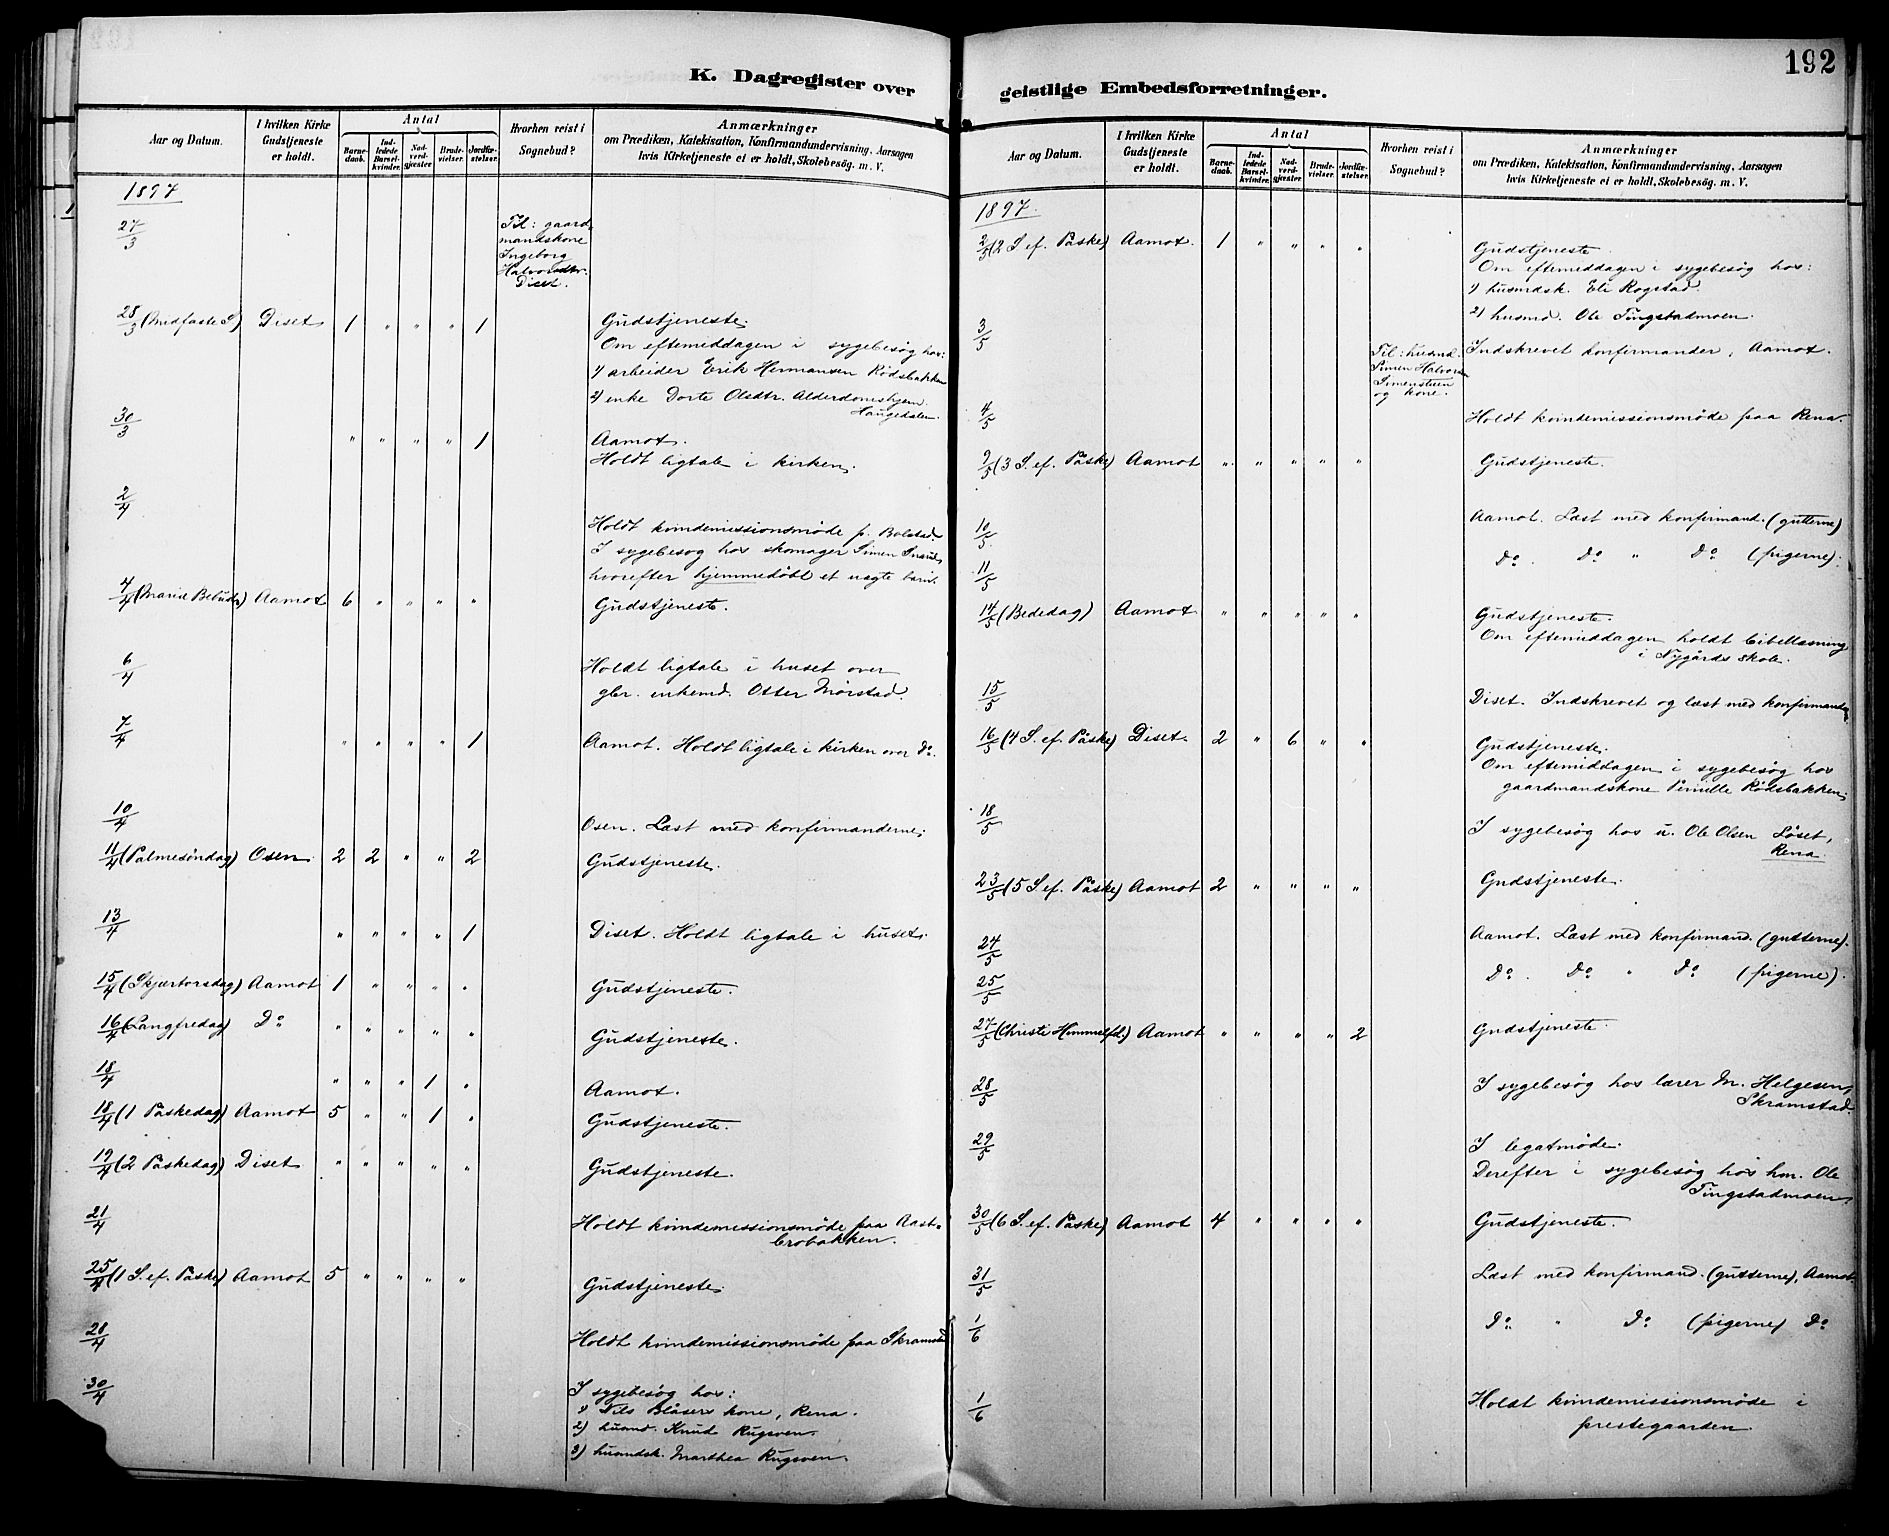 192
K. Dagregister over
geistlige Embedsforretninger.
Aar og Datum.
I hvilken Kirke Gudstjeneste er holdt.
Antal
Barne-daab.
Ind-ledede Barsel-kvinder.
Nad-verd-gjæster.
Brude-vielser.
Jordfæ-stelser.
Hvorhen reist i Sognebud?
Anmærkninger
om Prædiken, Katekisation, Konfirmandundervisning, Aarsagen
hvis Kirketjeneste ei er holdt, Skolebesög. m. V.
1897
27/3 Til: gaard-
mandskone
Ingeborg
Halvorsdtr.
Diset.
28/3 (Midfaste S) Diset 1 " " " 1 Gudstjeneste.
Om eftemiddagen i sygebesøg hos:
1) arbeider Erik Hermansen Rødsbakken
2) enke Dorte Olsdtr. Alderdomshjem
Haugedalen.
30/3 " " " " 1 Aamot.
Holdt ligtale i kirken.
2/4 Holdt kvindemissionsmøde p. Bolstad.
I sygebesøg hos skomager Simen
hvorefter hjemmedøbt et uægte barn.
4/4 (Mariæ Beb) Aamot 6 " " " " Gudstjeneste.
6/4 Holdt ligtale i huset over
gbr. enkemd. Otter Mørstad.
7/4 " " " " 1 Aamot. Holdt ligtale i kirken over Do.
10/4 Osen. Læst med konfirmanderne.
11/4 (Palmesøndag) Osen 2 2 " " 2 Gudstjeneste.
13/4 " " " " 1 Diset. Holdt ligtale i huset.
15/4 (Skjærtorsdag) Aamot 1 " " " " Gudstjeneste.
16/4 (Langfredag) Do " " " " " Gudstjeneste.
18/4 " " " 1 " Aamot.
18/4 (1 Påskedag) Aamot 5 " " 1 " Gudstjeneste.
19/4 (2 Påskedag) Diset " " " " " Gudstjeneste.
21/4 Holdt kvindemissionsmøde paa Aast-
brobakken.
25/4 (1 S. ef. Påske) Aamot 5 " " " " Gudstjeneste.
28/4 Holdt kvindemissionsmøde paa Skramstad
30/4 I sygebesøg hos:
1) Nils Blåsers kone, Rena.
2) husmd. Knud Rugsveen
3) husmdsk. Marthea Rugsveen.
Aar og Datum.
I hvilken Kirke Gudstjeneste er holdt.
Antal
Barne-daab.
Ind-ledede Barsel-kvinder.
Nad-verd-gjæster.
Brude-vielser.
Jordfæ-stelser.
Hvorhen reist i Sognebud?
Anmærkninger
om Prædiken, Katekisation, Konfirmandundervisning, Aarsagen
hvis Kirketjeneste ei er holdt, Skolebesög. m. V.
1897.
2/5 (2 S. ef. Påske) Aamot. 1 " " " " Gudstjeneste
Om eftemiddagen i sygebesøg hos:
1) husmdsk. Eli Rogstad
2) husmd. Ole Tingstadmoen.
3/5 Til: husmd. Simen Halvorsen Simenstuen og kone. Indskrevet konfirmander, Aamot.
4/5 Holdt kvindemissionsmøde paa Rena.
9/5 (3 S. ef. Påske) Aamot " " " " " Gudstjeneste.
10/5 Aamot. Læst med konfirmand. (gutterne)
11/5 Do. Do " Do (pigerne).
14/5 (Bededag) Aamot " " " " " Gudstjeneste.
Om eftemiddagen holdt bibellæsning
i Nygårds skole.
15/5 Diset. Indskrevet og læst med konfirmander
16/5 (4 S. ef. Påske) Diset. 2 " 6 " " Gudstjeneste.
Om eftemiddagen i sygebesøg hos
gaardmandskone Pernille Rødsbakken.
18/5 I sygebesøg hos u. Ole Olsen Løset,
Rena.
23/5 (5 S. ef. Påske) Aamot 2 " " " " Gudstjeneste.
24/5 Aamot. Læst med konfirmand. (gutterne).
25/5 Do. Do " Do (pigerne).
27/5 (Christi Himmelfd.) Aamot " " " " 2 Gudstjeneste.
28/5 I sygebesøg hos lærer M. Helgesen,
Skramstad
29/5 I legatmøde.
Derefter i sygebesøg hos hm. Ole
Tingstadmoen
30/5 (6 S. ef. Påske) Aamot 4 " " " " Gudstjeneste.
31/5 Læst med konfirmand. (gutterne), Aamot
1/6 Do " Do (pigerne) Do
1/6 Holdt kvindemissionsmøde i
prestegaarden.